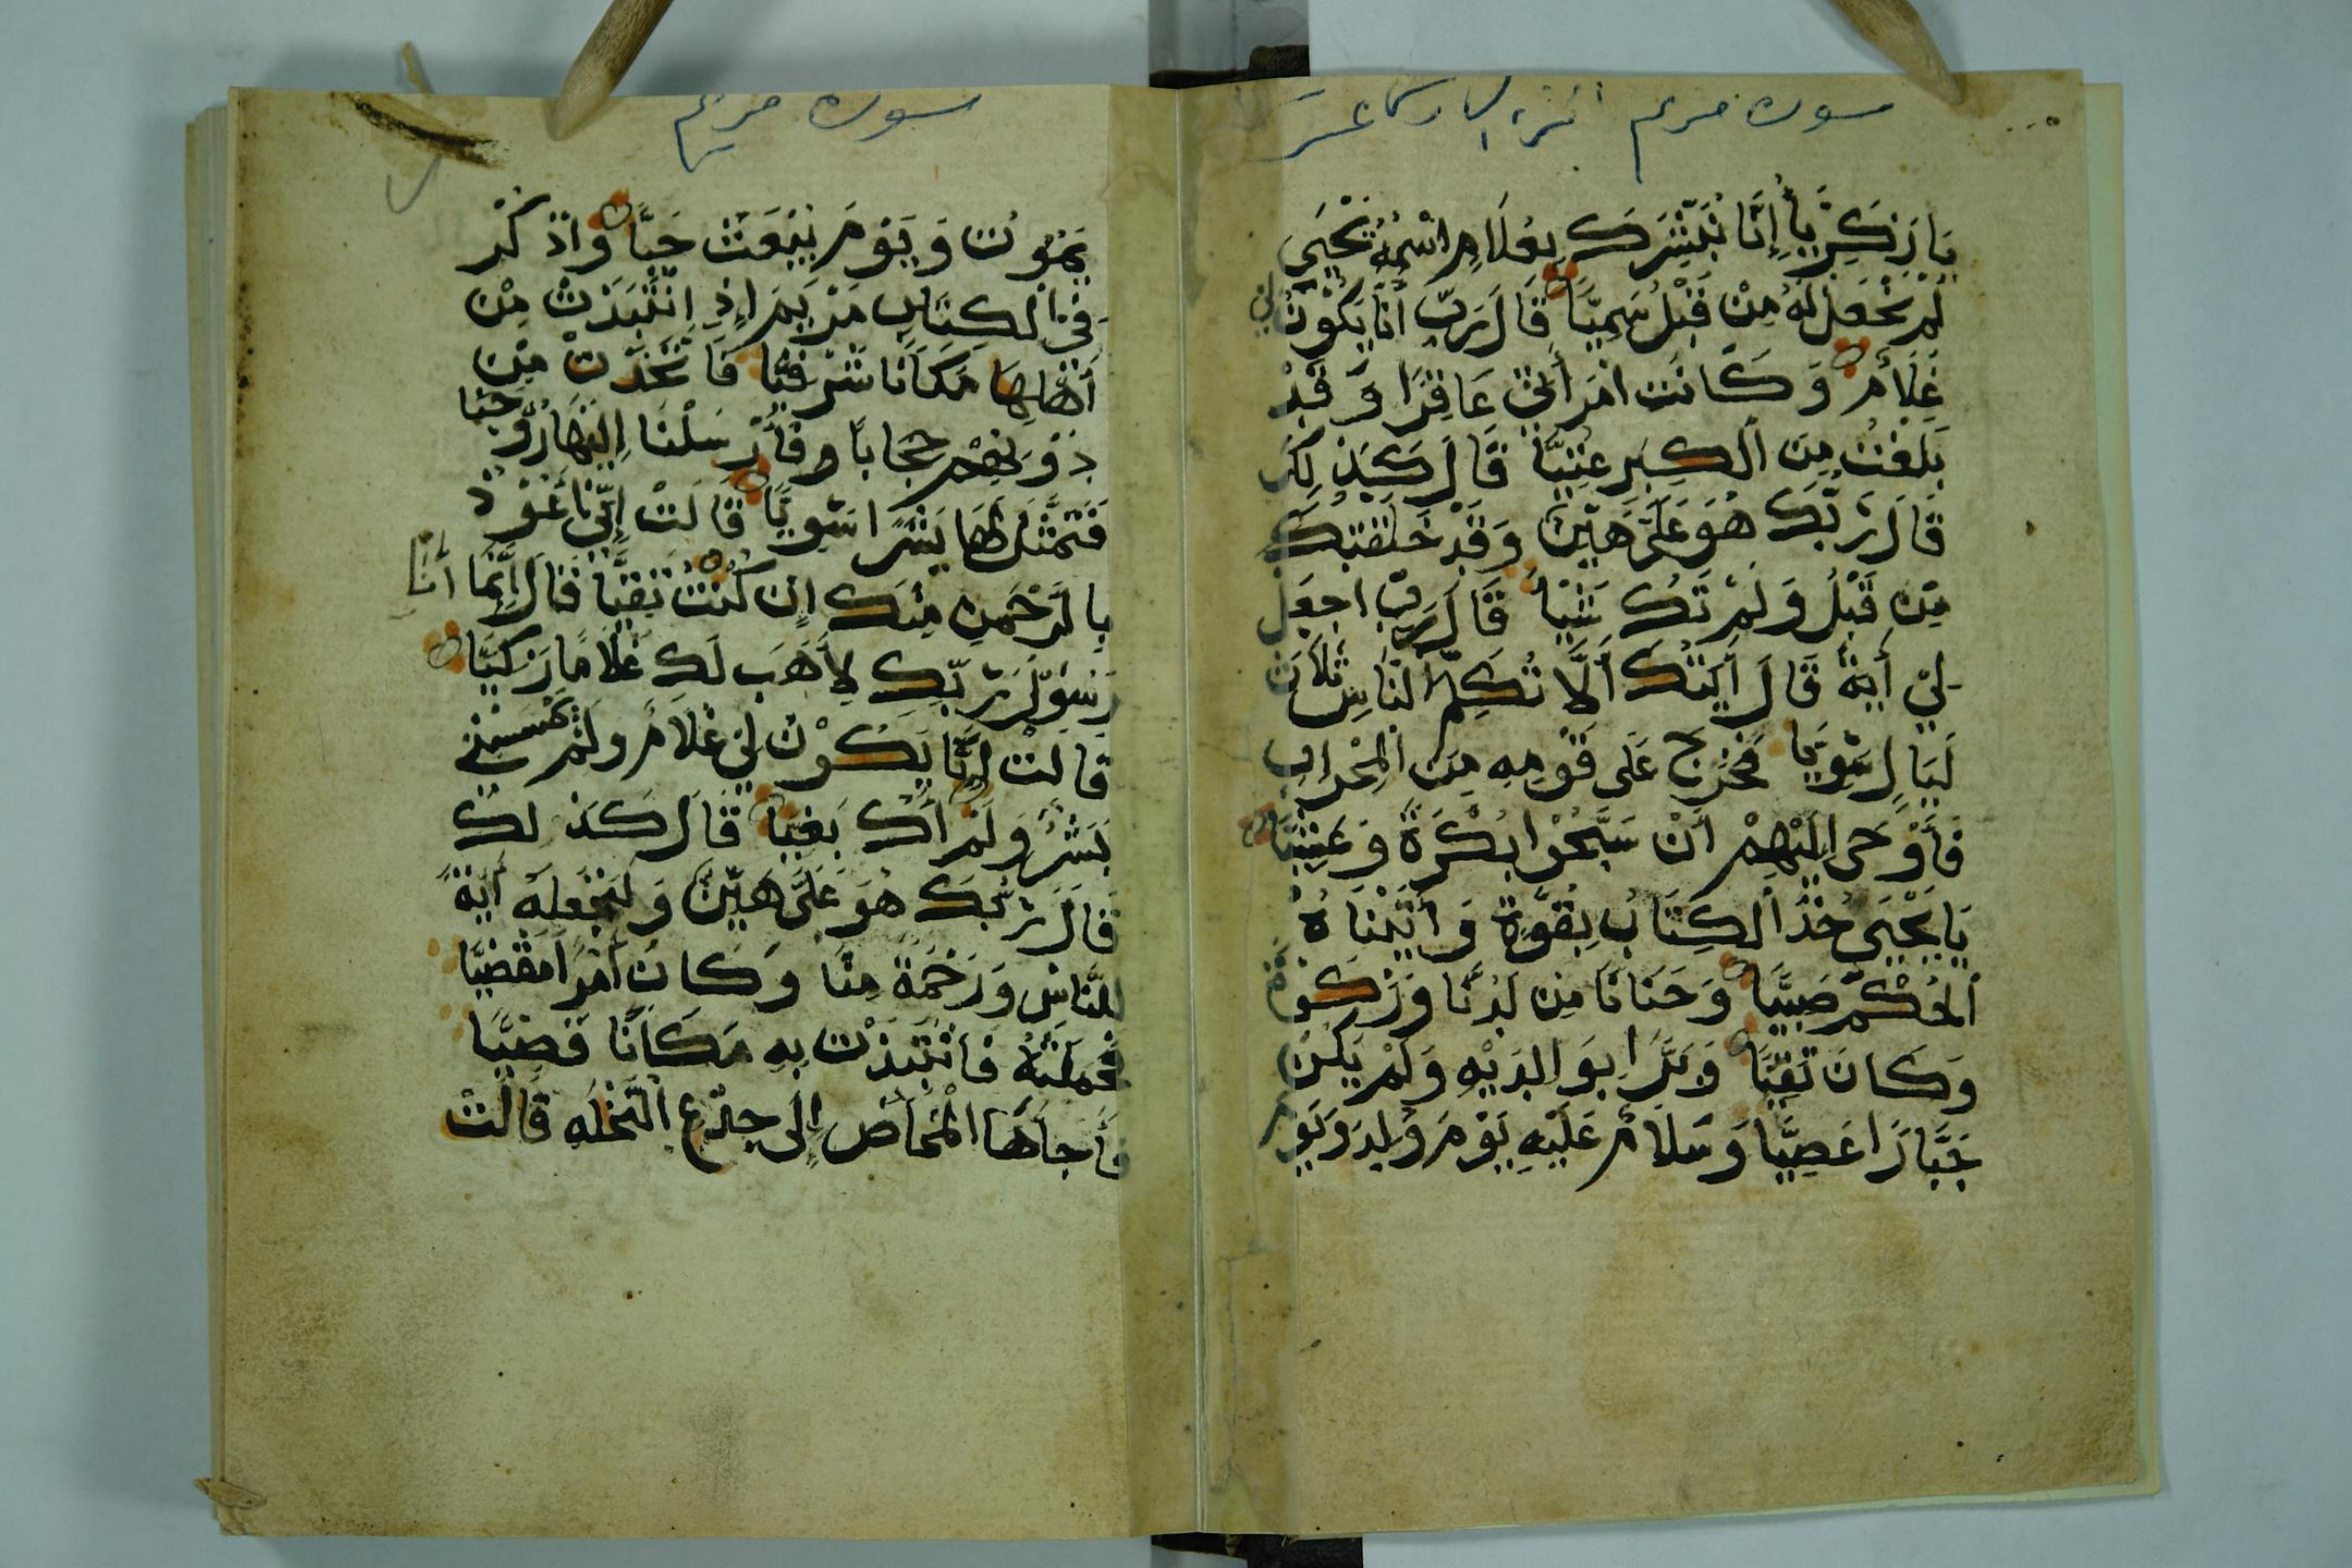 سورة مريم الجزء السادس عشر
يَا زَكَرِيَّا إِنَّا نُبَشِّرُكَ بِغُلَامٍ اسْمُهُ يَحْيَى
لَمْ نَجْعَلْ لَهُ مِنْ قَبْلُ سَمِيًّا قَالَ رَبِّ أَنَّا يَكُوْنُ لِي
غُلَامٌ وَكَانَتِ امْرَأَتِي عَاقِرًا وَقَدْ
بَلَغْتُ مِنَ الْكِبَرِ عِتِيًّا قَالَ كَذٰلِكَ
قَالَ رَبُّكَ هُوَ عَلَيَّ هَيِّنٌ وَقَدْ خَلَقْتُكَ
مِنْ قَبْلُ وَلَمْ تَكُ شَيْئًا قَالَ رَبِّ اجْعَلْ
لِيْ أَيَةً قَالَ أَيَتُكَ أَلَّا تُكَلِّمَ النَّاسَ ثَلَاثَ
لَيَالٍ سَوِيًّا فَخَرَجَ عَلَى قَوْمِهِ مِنَ الْمِحْرَابِ
فَأَوْحَى إِلَيْهِمْ أَنْ سَبِّحُوْا بُكْرَةً وَعَشِيًّا
يَا يَحْيَى خُذِ الْكِتَابَ بِقُوَّةٍ وَأَتَيْنَاهُ
الْحُكْمَ صَبِيًّا وَحَنَانًا مِنْ لَدُنَّا وَزَكٰوةً
وَكَانَ تَقِيًّا وَبَرًّا بِوَالِدَيْهِ وَلَمْ يَكُنْ
جَبَّارًا عَصِيًّا وَسَلَامٌ عَلَيْهِ يَوْمَ وُلِدَ وَيَوْمَ
سورة مريم
يَمُوْتُ وَيَوْمَ يُبْعَثُ حَيًّا وَاذْكُرْ
فِي الْكِتَابِ مَرْيَمَ إِذِ انْتَبَذَتْ مِنْ
أَهْلِهَا مَكَانًا شَرْقِيًّا فَاتَّخَذَتْ مِنْ
دُوْنِهِمْ حِجَابًا فَأَرْسَلْنَا إِلَيْهَا رُوْحَنَا
فَتَمَثَّلَ لَهَا بَشَرًا سَوِيًّا قَالَتْ إِنِّي أَعُوْذُ
بِالرَّحْمٰنِ مِنْكَ إِنْ كُنْتَ تَقِيًّا قَالَ إِنَّمَا أَنَا
رَسُوْلُ رَبِّكِ لِأَهَبَ لَكِ غُلَامًا زَكِيًّا
قَالَتْ أَنَّا يَكُوْنُ لِيْ غُلَامٌ وَلَمْ يَمْسَسْنِي
بَشَرٌ وَلَمْ أَكُ بَغِيًّا قَالَ كَذٰلِكِ
قَالَ رَبُّكِ هُوَ عَلَيَّ هَيِّنٌ وَلِنَجْعَلَهُ أَيَةً
لِلنَّاسِ وَرَحْمَةً مِنَّا وَكَانَ أَمْرًا مَقْضِيًّا
فَحَمَلَتْهُ فَانْتَبَذَتْ بِهِ مَكَانًا قَصِيًّا
فَأَجَاَهَا الْمَخَاضُ إِلَى جِذْعِ النَّخْلَةِ قَالَتْ